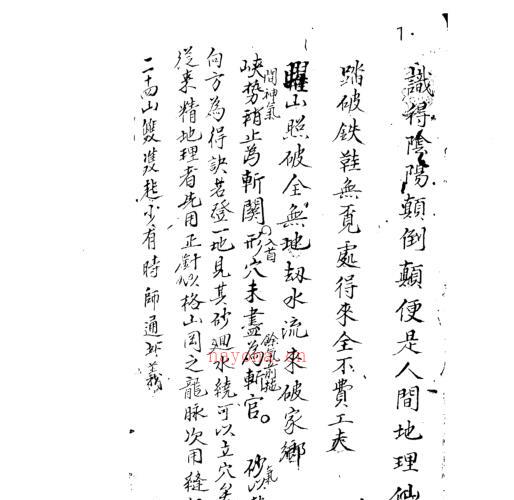 7.
識得陰陽顛倒顛便是人間地理仙
踏破鉄鞋無覓處得來全不費工夫
曜山照破全無地刼水流来破家鄉
間神氣
峽勢稍止為斬関形穴未盡為斬官。砂以
入首
餘氣前拖
氣
向方為得訣若登一地見其砂廻水繞可以立穴矣
從来精地理者先用正針以格山岡之龍脉次用縫
二十四山雙雙起少有時師通此義